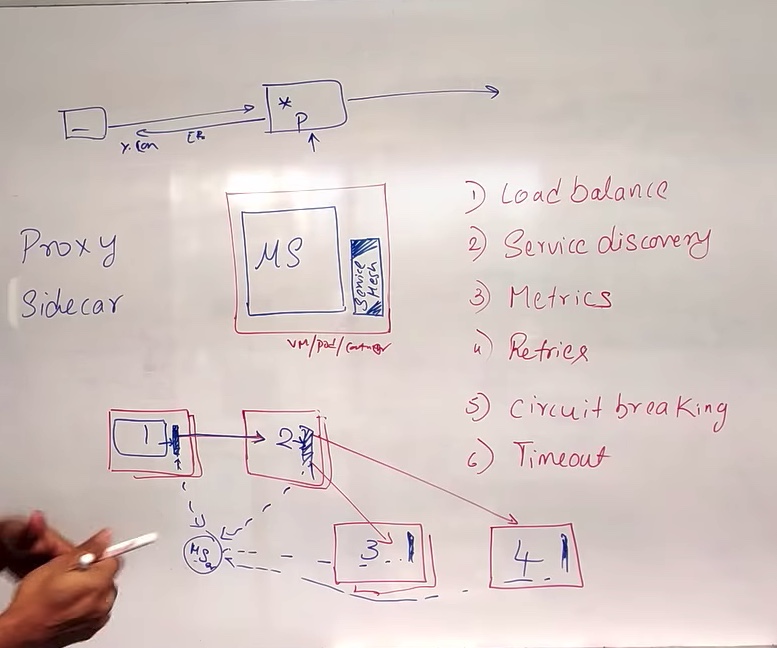 * P
Y.Com
Proxy
Sidecar
MS
Service Mesh
VM/pod/container
1) Load balance
2) Service discovery
3) Metrics
4) Retries
5) Circuit breaking
6) Timeout
1
2
3
4